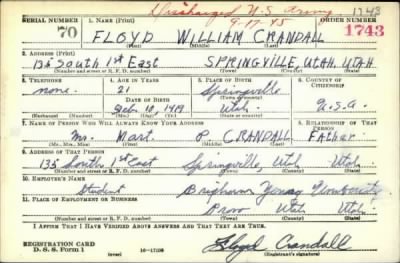 Discharged U.S. Army 1743
9-17-45
SERIAL NUMBER 1. Name (Print) ORDER NUMBER
70 FLOYD WILLIAM CRANDALL 1743
(First) (Middle) (Last)
2. Address (Print)
135 South 1st East SPRINGVILLE, UTAH, UTAH
(Number and street or R. F. D. number) (Town) (County) (State)
3. Telephone 4. Age in Years 5. Place of Birth 6. Country of Citizenship
none. 21 Springville
Date of Birth (Town or county)
10, 1919 Utah. U.S.A.
(Mo.) (Day) (Yr.) (State or country)
7. Name of Person Who Will Always Know Your Address 8. Relationship of That Person
Mr. Mart P CRANDALL Father
(Mr., Mrs., Miss) (First) (Middle) (Last)
9. Address of That Person
135 South 1st East Springville, Utah Utah
(Number and street or R. F. D. number) (Town) (County) (State)
10. Employer's Name
Student Brigham Young University
11. Place of Employment or Business
Provo Utah Utah.
(Number and street or R. F. D. number) (Town) (County) (State)
I Affirm That I Have Verified Above Answers and That They Are True.
REGISTRATION CARD
D. S. S. Form 1 (over) 16-17105 Floyd Crandall
(Registrant's signature)